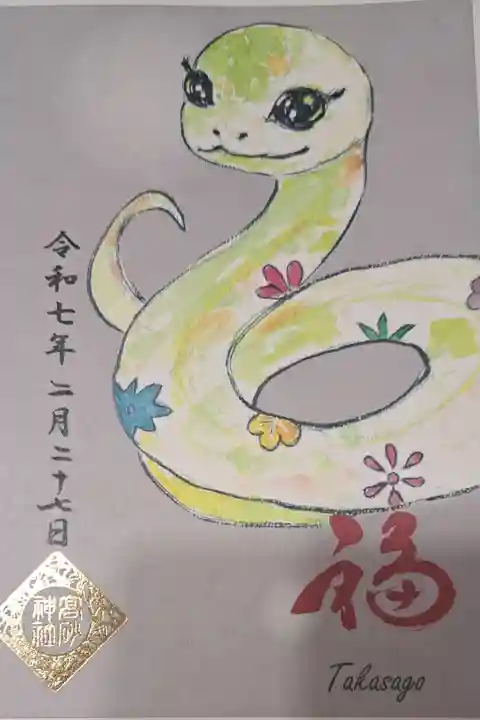 令和七年 二月二十七日
福
高砂
神社
Takasago